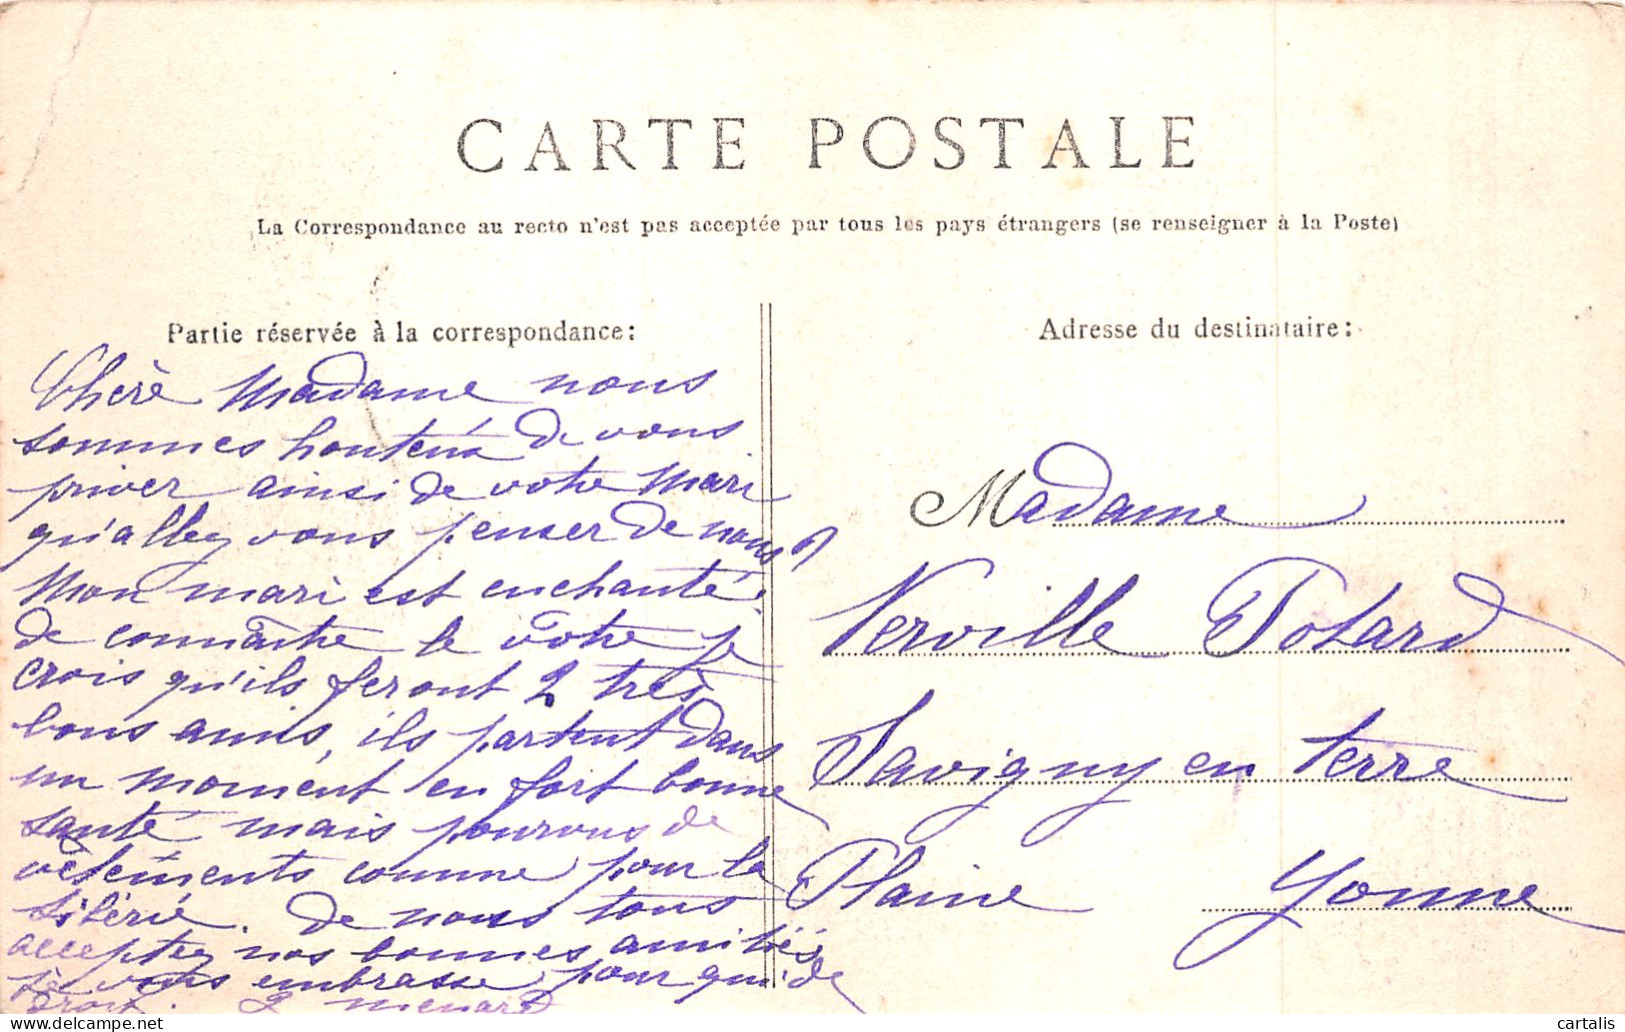 CARTE POSTALE
La Correspondance au recto n'est pas acceptée par tous les pays étrangers (se renseigner à la Poste)
Partie réservée à la correspondance:
Chère Madame nous
sommes honteux de vous
priver ainsi de votre mari
qu'allez vous penser de nous
Mon mari est enchanté
de connaitre le votre je
crois qu'ils feront 2 très
bons amis, ils partent dans
un moment en fort bonne
santé mais pourvus de
vêtements comme pour la
Sibérie. De nous tous
acceptez nos bonnes amitiés
je vous embrasse pour qui de
droit. Menard
Adresse du destinataire:
Madame
Verville Potard
Savigny en terre
Plaine Yonne
cartalis